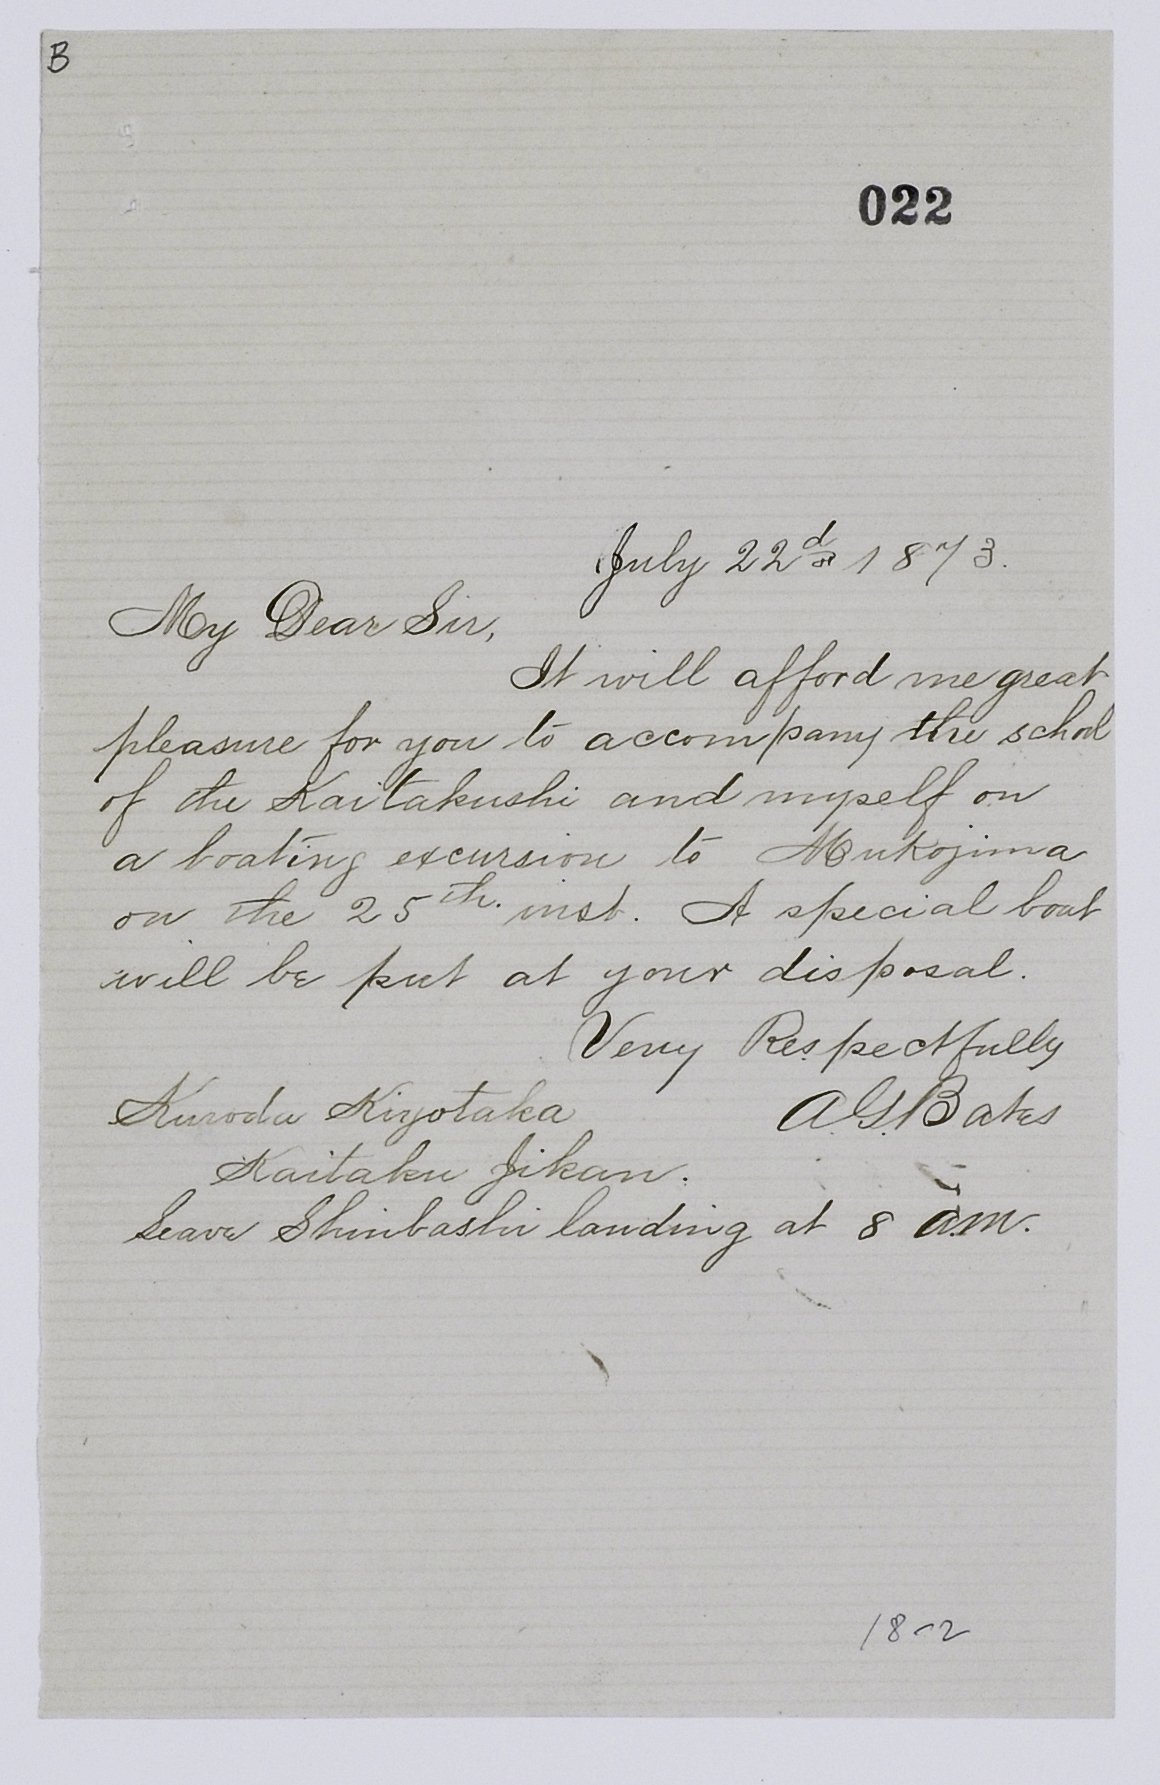 B
022
July 22d 1873.
My Dear Sir,
It will afford me great
pleasure for you to accompany the school
of the Kaitakushi and myself on
a boating excursion to Mukojima
on the 25th. inst. A special boat
will be put at your disposal.
Very Respectfully
Kuroda Kiyotaka A.G. Bates
Kaitaku Jikan.
Leave Shinbashi landing at 8 a.m.
18-2